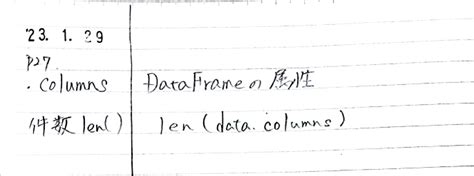 '23. 1. 29
P27
. columns DataFrameの属性
件数 len() len (data. columns)